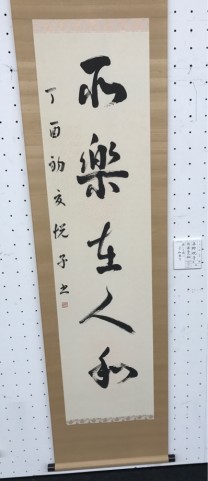 所樂在人和
丁酉初夏悦子书